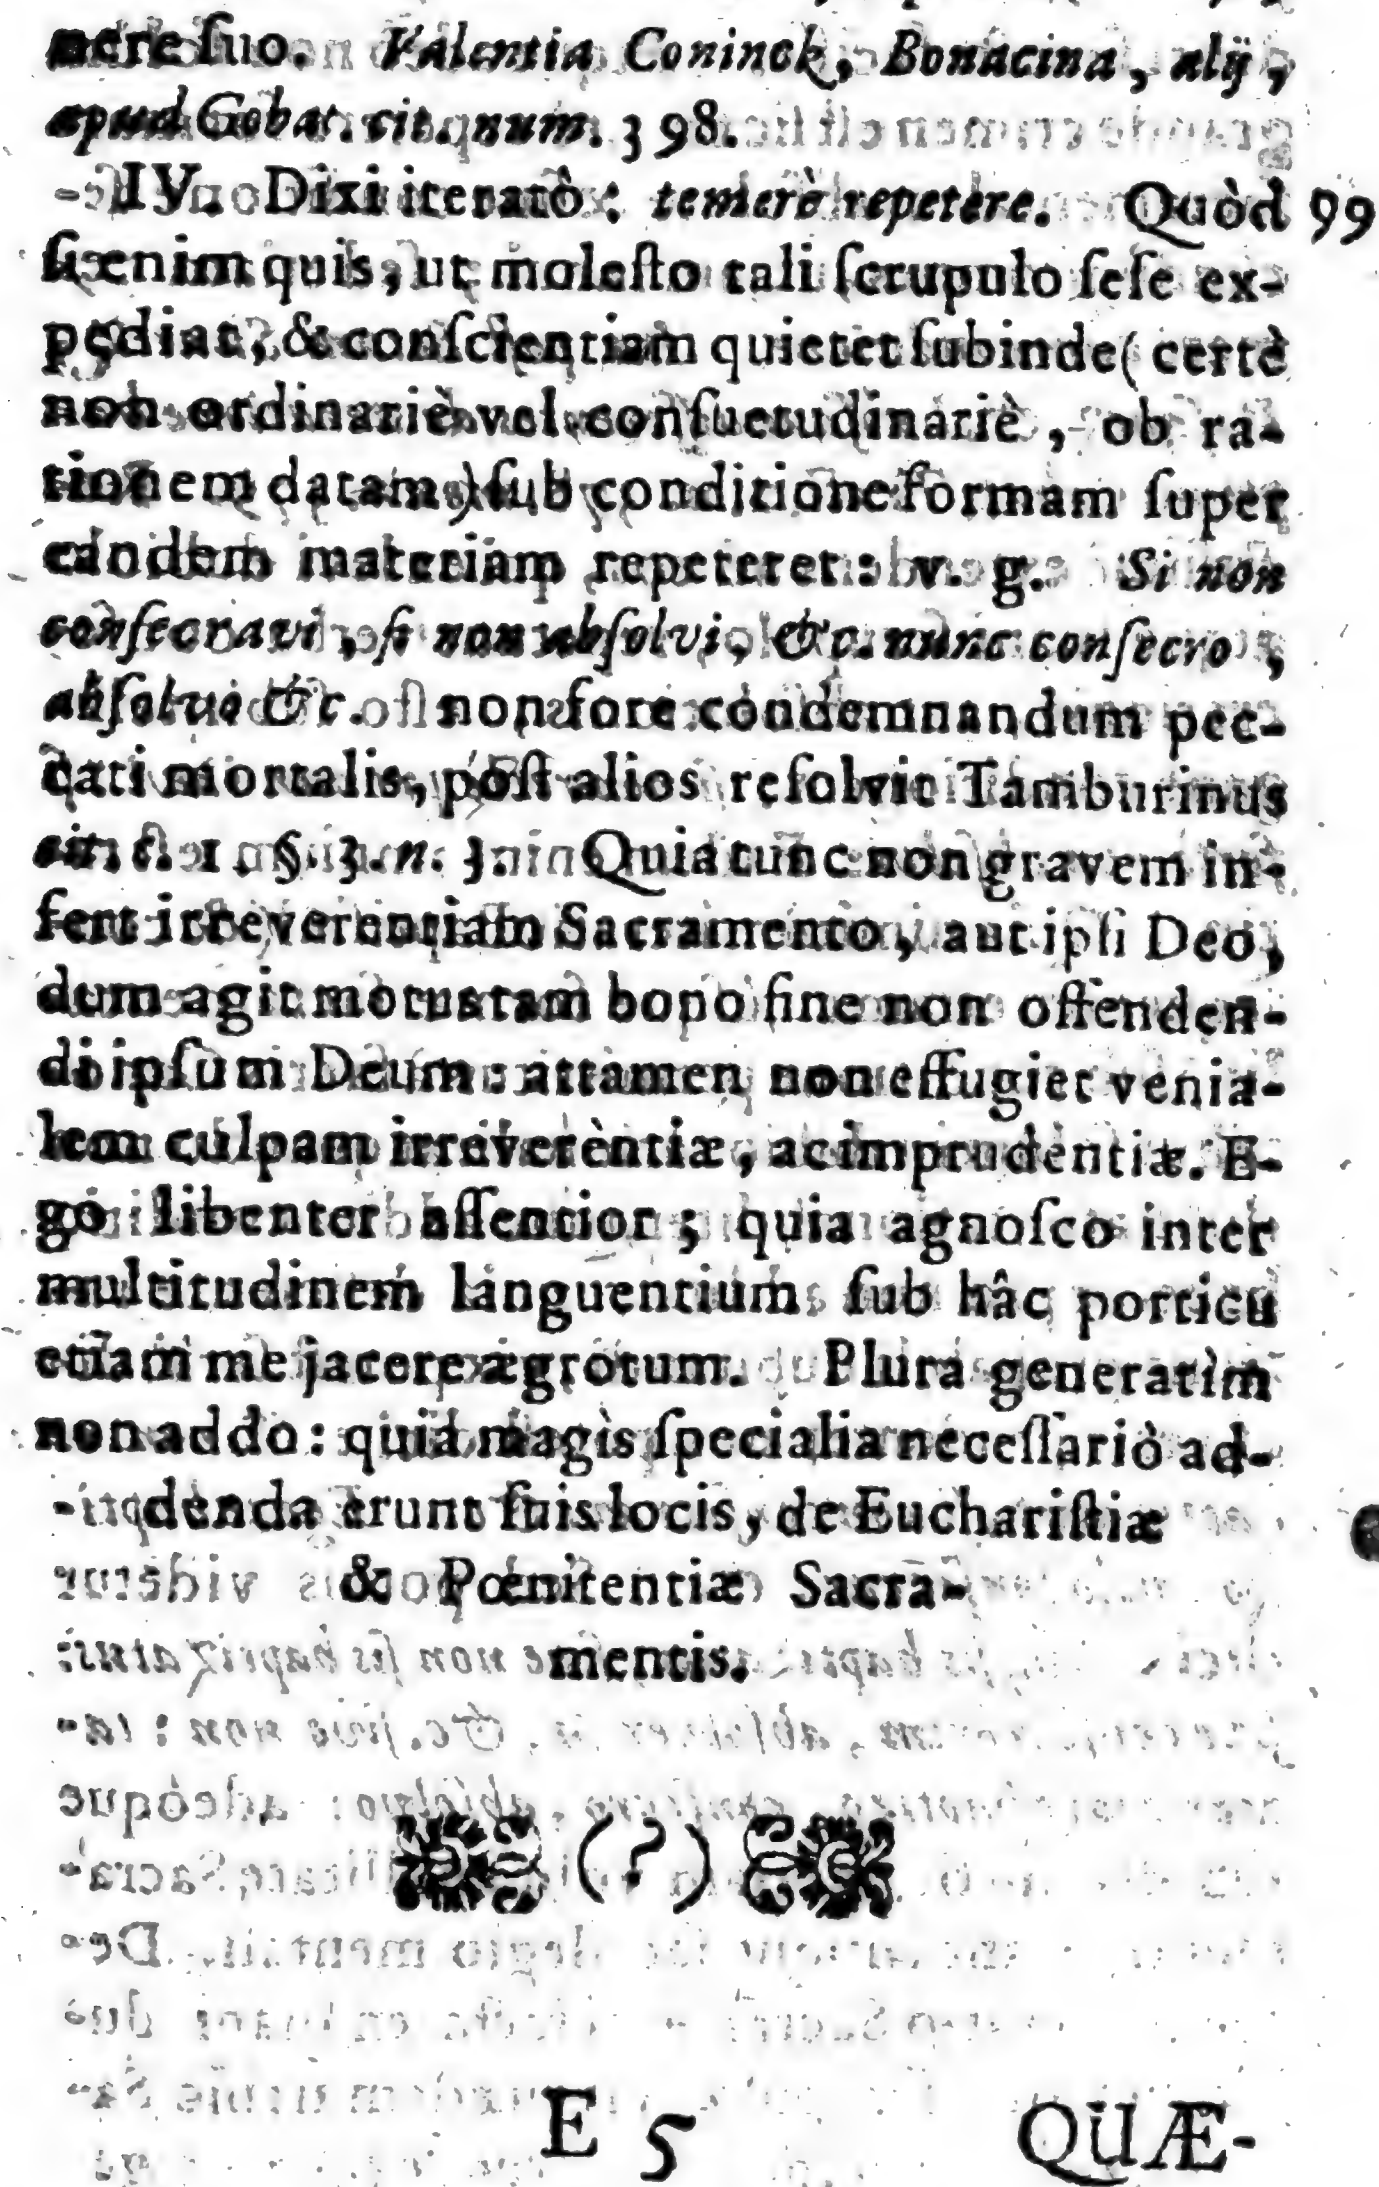 nere ſuo. Valentia Coninck, Bonacina, alij,
apud Gobat. cit. num. 398.
IV. Dixi iteratò: temerè repetere. Quòd 99
ſi enim quis, ut moleſto tali ſcrupulo ſeſe ex-
pediat, & conſcientiam quietet ſubinde (certè
non ordinariè vel conſuetudinariè, ob ra-
tionem datam) ſub conditione formam ſuper
eandem materiam repeteret: v. g. Si non
conſecravi, ſi non abſolvi, &c. nunc conſecro,
abſolvo &c. non fore condemnandum pec-
cati mortalis, poſt alios reſolvit Tamburinus
cit. c. 1. §. 3. n. 3. Quia tunc non gravem in-
fert irreverentiam Sacramento, aut ipſi Deo,
dum agit motus tam bono fine non offenden-
di ipſum Deum: attamen non effugiet venia-
lem culpam irreverèntiæ, ac imprudentiæ. E-
go libenter aſſentior; quia agnoſco inter
multitudinem languentium ſub hâc porticu
etiam me jacere ægrotum. Plura generatìm
non addo: quia magìs ſpecialia neceſſariò ad-
denda erunt ſuis locis, de Euchariſtiæ
& Pœnitentiæ Sacra-
mentis.
(?)
E 5 QUÆ-